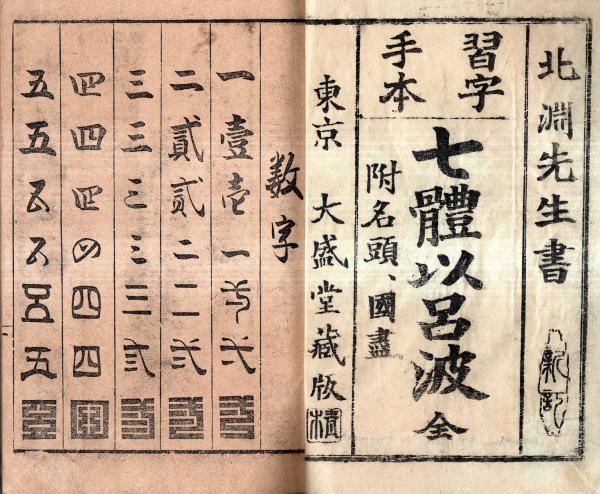 北淵先生書
習字
手本
七體以呂波 全
附名頭、國盡
東京 大盛堂藏版
数字
一壹壱一弌
二貳弐二二弍
三三三三三弎
四四四四四四
五五五五五五